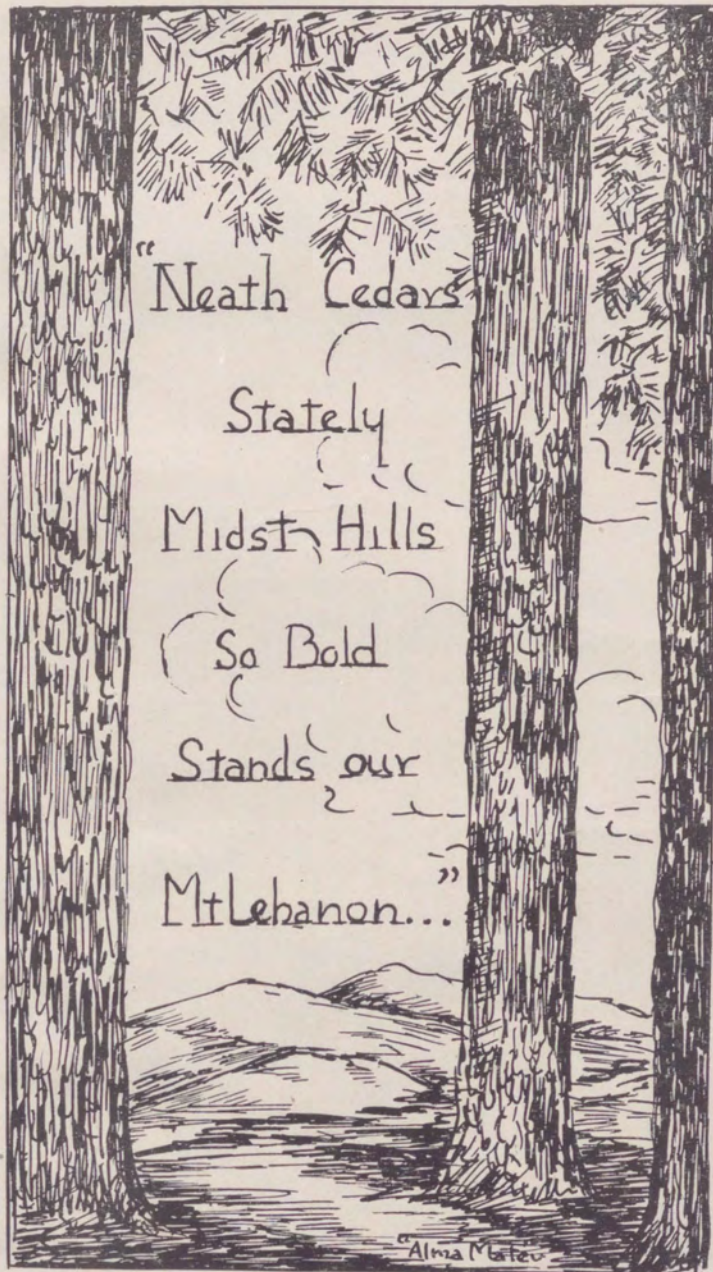 "Neath Cedars
Stately
Midst Hills
So Bold
Stands our
Mt Lebanon..."
"Alma Mater